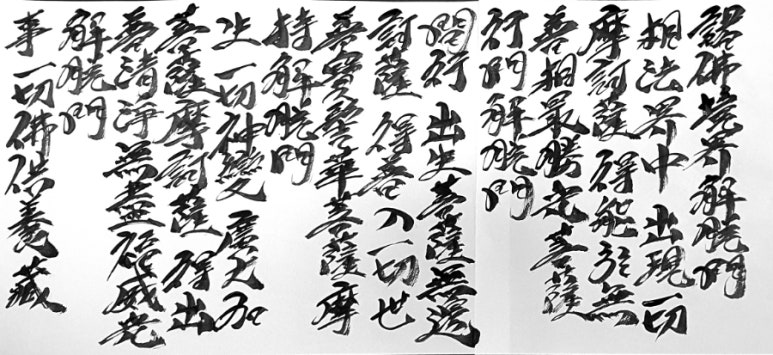 事一切佛供養藏
解脫門
普清淨無盡福威光
菩薩摩訶薩得出
生一切神變廣大加
持解脫門
普寶髻華菩薩摩
訶薩得普入一切世
間行出生菩薩無邊
行門解脫門
普相最勝光菩薩
摩訶薩得能於無
相法界中出現一切
諸佛境界解脫門